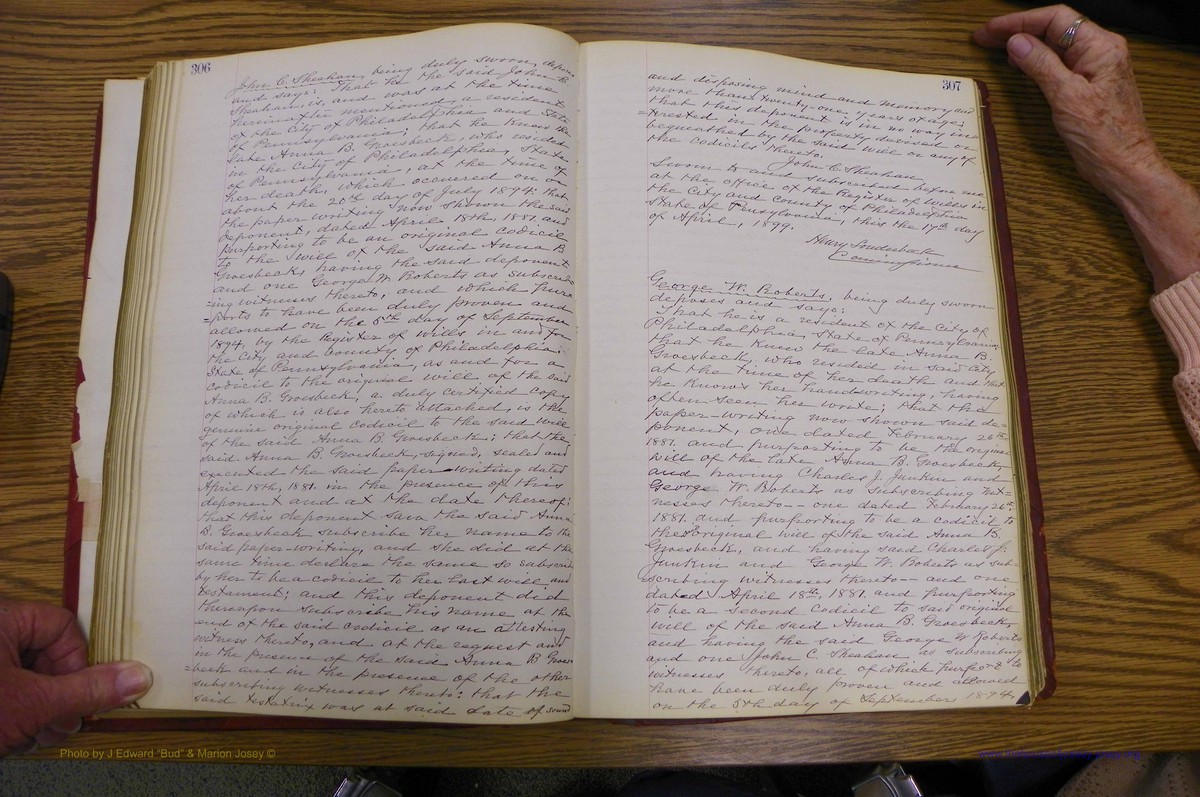 306
John C. Sheahan, being duly sworn, depos-
and says: That he the said John C.
Sheahan, is, and was at the time
hereinafter mentioned, a resident
of the City of Philadelphia and State
of Pennsylvania; that he knew the
late Anna B. Groesbeck, who resided
in the City of Philadelphia, State
of Pennsylvania, at the time of
her death, which occurred on or
about the 20th day of July 1894: that
the paper writing now shown the said
deponent, dated April 18th, 1881, and
purporting to be an original codicil
to the will of the said Anna B.
Groesbeck, having the said deponent
and one George W. Roberts as subscrib
=ing witnesses thereto, and which pur=
=ports to have been duly proven and
allowed on the 5th day of September
1894, by the Register of Wills in and for
the City and County of Philadelphia,
State of Pennsylvania, as and for a
codicil to the original will of the said
Anna B. Groesbeck, a duly certified copy
of which is also hereto attached, is the
genuine original codicil to the said will
of the said Anna B. Groesbeck; that the
said Anna B. Groesbeck, signed, sealed and
executed the said paper-writing dated
April 18th, 1881. in the presence of this
deponent and at the date thereof:
that this deponent saw the said Anna
B. Groesbeck subscribe her name to the
said paper-writing, and she did at the
same time declare the same so subscrib
by her to be a codicil to her last will and
testament; and this deponent did
thereupon subscribe his name at the
end of the said codicil as an attesting
witness thereto, and at the request and
in the presence of the said Anna B Groes
=beck and in the presence of the other
subscribing witnesses thereto: that the
said testatrix was at said date of sound
307
and disposing mind and memory and
more than twenty-one years of age;
that this deponent is in no way in=
=trested in the property devised or
bequeathed by the said will or any of
the codicils thereto.
John C. Sheahan
Sworn to and subscribed before me
at the office of the Register of Wills in
the City and County of Philadelphia
State of Pennsylvania, this the 17th day
of April, 1899.
Henry
George W. Roberts, being duly sworn
deposes and says:
That he is a resident of the City of
Philadelphia, State of Pennsylvania;
that he knew the late Anna B.
Groesbeck, who resided in said City
at the time of her death and that
he knows her handwriting, having
often seen her write; that the
paper-writing now shown said de=
ponent, one dated February 26th
1881. and purporting to be the original
will of the late Anna B. Groesbeck,
and having Charles J. Junkin and
George W. Roberts as subscribing wit=
nesses thereto— one dated February 26th
1881. and purporting to be a codicil to
the original will of the said Anna B.
Groesbeck, and having said Charles J.
Junkin and George W. Roberts as sub=
scribing witnesses thereto— and one
dated April 18th, 1881. and purporting
to be a second codicil to said original
will of the said Anna B. Groesbeck,
and having the said George W Roberts
and one John C. Sheahan as subscribing
witnesses thereto, all of which purport to
have been duly proven and allowed
on the 5th day of September 1894,
Photo by J Edward "Bud" & Marion Josey ©